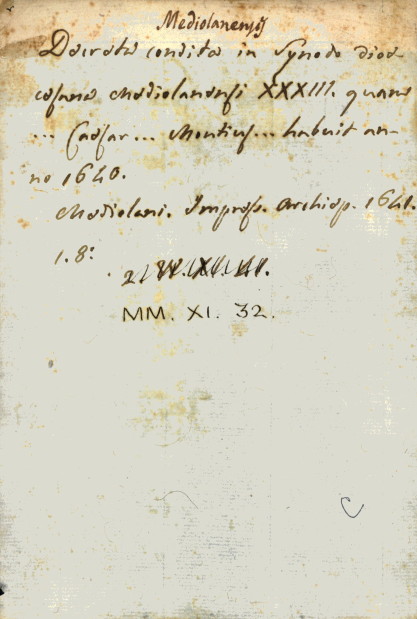 Mediolanensis
Decreta condita in Synodo dioe
cesana Mediolanensi XXXIII. quam
... Caesar... Montius... habuit an-
no 1640.
Mediolani. Impress. Archiep. 1641.
1. 8:
MM. XI. 32.
C